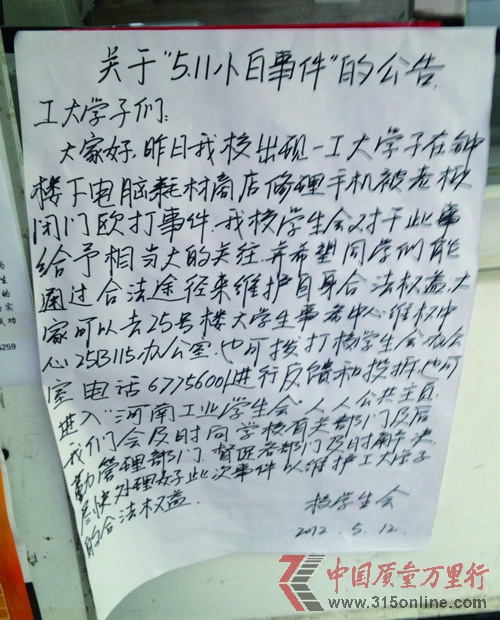 关于“5.11小白事件”的公告
工大学子们:
大家好,昨日我校出现一工大学子在钟
楼下电脑耗材商店修理手机被老板
闭门欧打事件,我校学生会对于此事
给予相当大的关注,并希望同学们能
通过合法途径来维护自身合法权益,大
家可以去25号楼大学生事务中心维权中
心25B115办公室,也可拨打校学生会办公
室电话67756001进行反馈和投诉,也可
进入“河南工业学生会”人人公共主页,
我们会及时同学校有关部门及后
勤管理部门 督促各部门及时解决,
尽快处理好此次事件以维护工大学子
的合法权益.
校学生会
2012. 5. 12.
6259
中国质量万里行
www.315online.com